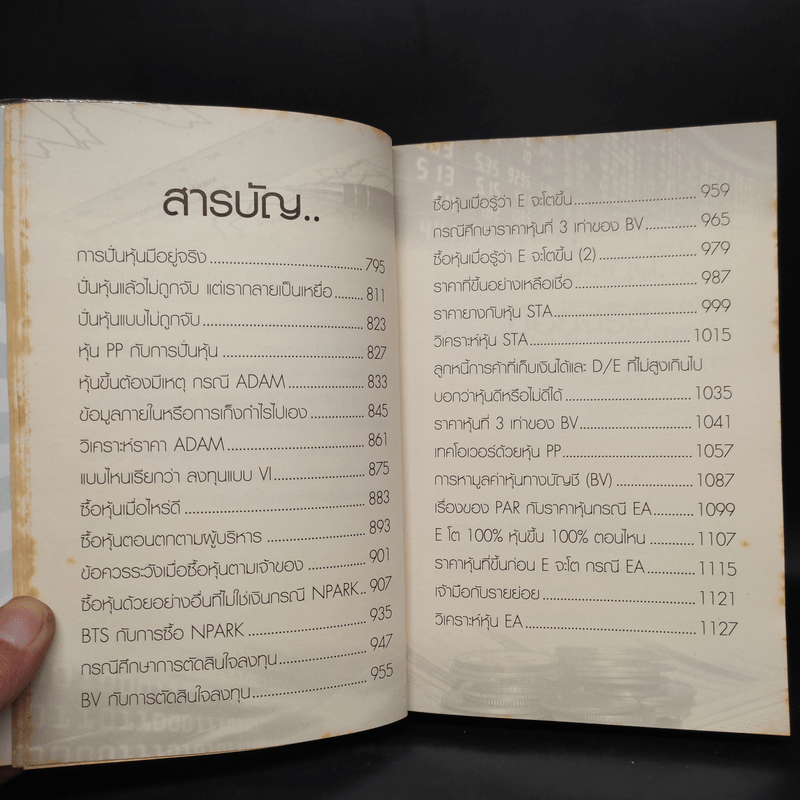 สารบัญ..
การปั่นหุ้นมีอยู่จริง.......................................795
ปั่นหุ้นแล้วไม่ถูกจับ แต่เรากลายเป็นเหยื่อ........811
ปั่นหุ้นแบบไม่ถูกจับ.......................................823
หุ้น PP กับการปั่นหุ้น...................................827
หุ้นขึ้นต้องมีเหตุ กรณี ADAM.....................833
ข้อมูลภายในหรือการเก็งกำไรไปเอง................845
วิเคราะห์ราคา ADAM...................................861
แบบไหนเรียกว่า ลงทุนแบบ VI.......................875
ซื้อหุ้นเมื่อไหร่ดี............................................883
ซื้อหุ้นตอนตกตามผู้บริหาร...........................893
ข้อควรระวังเมื่อซื้อหุ้นตามเจ้าของ..................901
ซื้อหุ้นด้วยอย่างอื่นที่ไม่ใช่เงินกรณี NPARK..907
BTS กับการซื้อ NPARK................................935
กรณีศึกษาการตัดสินใจลงทุน.........................947
BV กับการตัดสินใจลงทุน..............................955
ซื้อหุ้นเมื่อรู้ว่า E จะโตขึ้น..............................959
กรณีศึกษาราคาหุ้นที่ 3 เท่าของ BV.............965
ซื้อหุ้นเมื่อรู้ว่า E จะโตขึ้น (2)........................979
ราคาที่ขึ้นอย่างเหลือเชื่อ................................987
ราคายางกับหุ้น STA....................................999
วิเคราะห์หุ้น STA........................................1015
ลูกหนี้การค้าที่เก็บเงินได้และ D/E ที่ไม่สูงเกินไป
บอกว่าหุ้นดีหรือไม่ดีได้................................1035
ราคาหุ้นที่ 3 เท่าของ BV............................1041
เทคโอเวอร์ด้วยหุ้น PP.................................1057
การหามูลค่าหุ้นทางบัญชี (BV)....................1087
เรื่องของ PAR กับราคาหุ้นกรณี EA............1099
E โต 100% หุ้นขึ้น 100% ตอนไหน............1107
ราคาหุ้นที่ขึ้นก่อน E จะโต กรณี EA..............1115
เจ้ามือกับรายย่อย.......................................1121
วิเคราะห์หุ้น EA..........................................1127